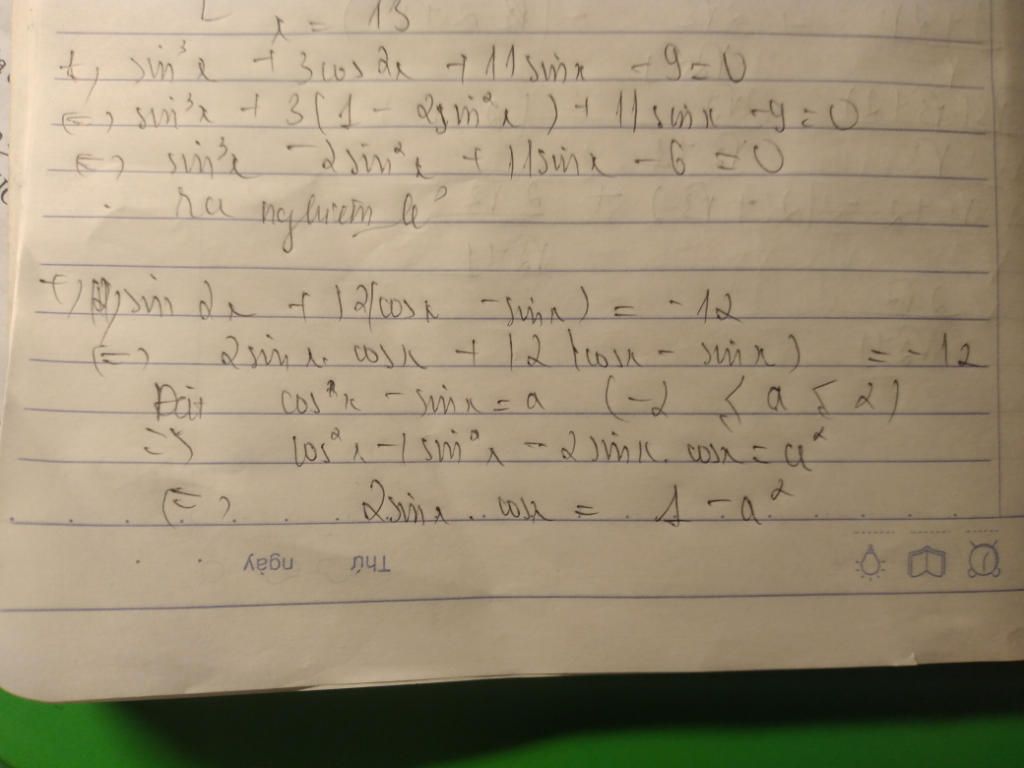 x = 13
+, sin³x + 3cos2x + 11sinx - 9 = 0
(=) sin³x + 3(1 - 2sin²x) + 11sinx - 9 = 0
(=) sin³x - 2sin²x + 11sinx - 6 = 0
Ra nghiệm lẻ
+, sin 2x + 12(cosx - sinx) = -12
(=) 2sinx. cosx + 12(cosx - sinx) = -12
Đặt cosx - sinx = a (-2 ≤ a ≤ 2)
=> cos²x + sin²x - 2sinx. cosx = a²
(=) 2sinx . cosx = 1 - a²
Thứ ngày